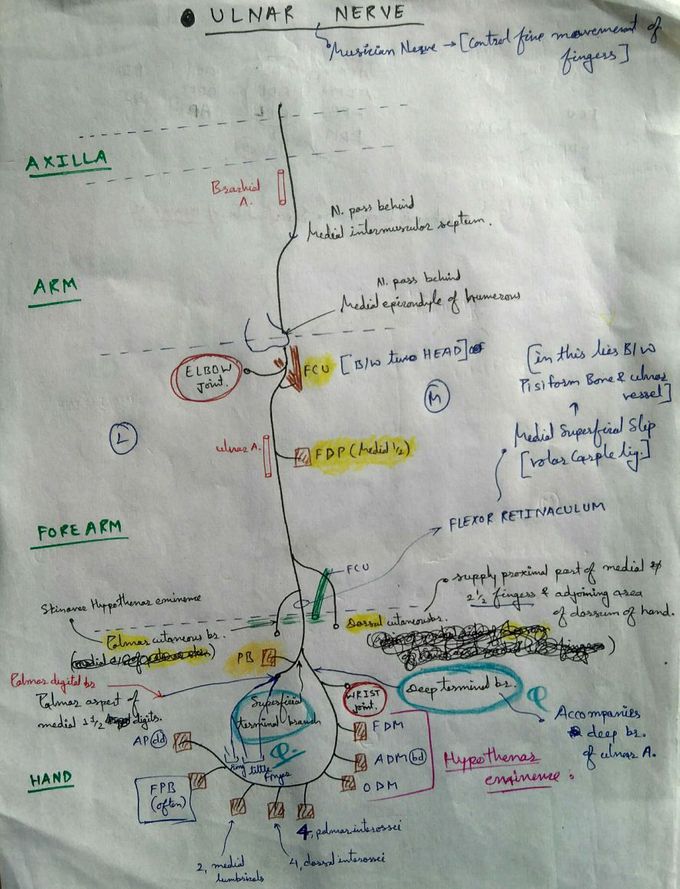 ULNAR NERVE
Musician Nerve → [Control fine movement of
fingers]
AXILLA
Brachial
A.
N. pass behind
Medial intermuscular septum.
ARM
N. pass behind
Medial epicondyle of humerous
ELBOW
Joint.
FCU [B/W two HEAD]
[in this lies B/W
Pisiform Bone & ulnar
vessel]
L
M
Medial Superficial Slip
[volar Carple lig.]
ulnar A.
FDP (Medial 1/2)
FOREARM
FLEXOR RETINACULUM
FCU
Skin over Hypothenar eminence
supply proximal part of medial
2 1/2 fingers & adjoining area
of dorsum of hand.
Palmar cutaneous br.
Dorsal cutaneous br.
PB
Palmar digital br
Palmar aspect of
medial 1 1/2 digits.
Superficial
terminal branch
WRIST
Joint.
Deep terminal br.
Accompanies
deep br.
of ulnar A.
AP (dd)
FDM
ADM (bd)
ODM
Hypothenar
eminence
HAND
FPB
(often)
ring little
Finger
4, palmar interossei
2, medial
lumbricals
4, dorsal interossei